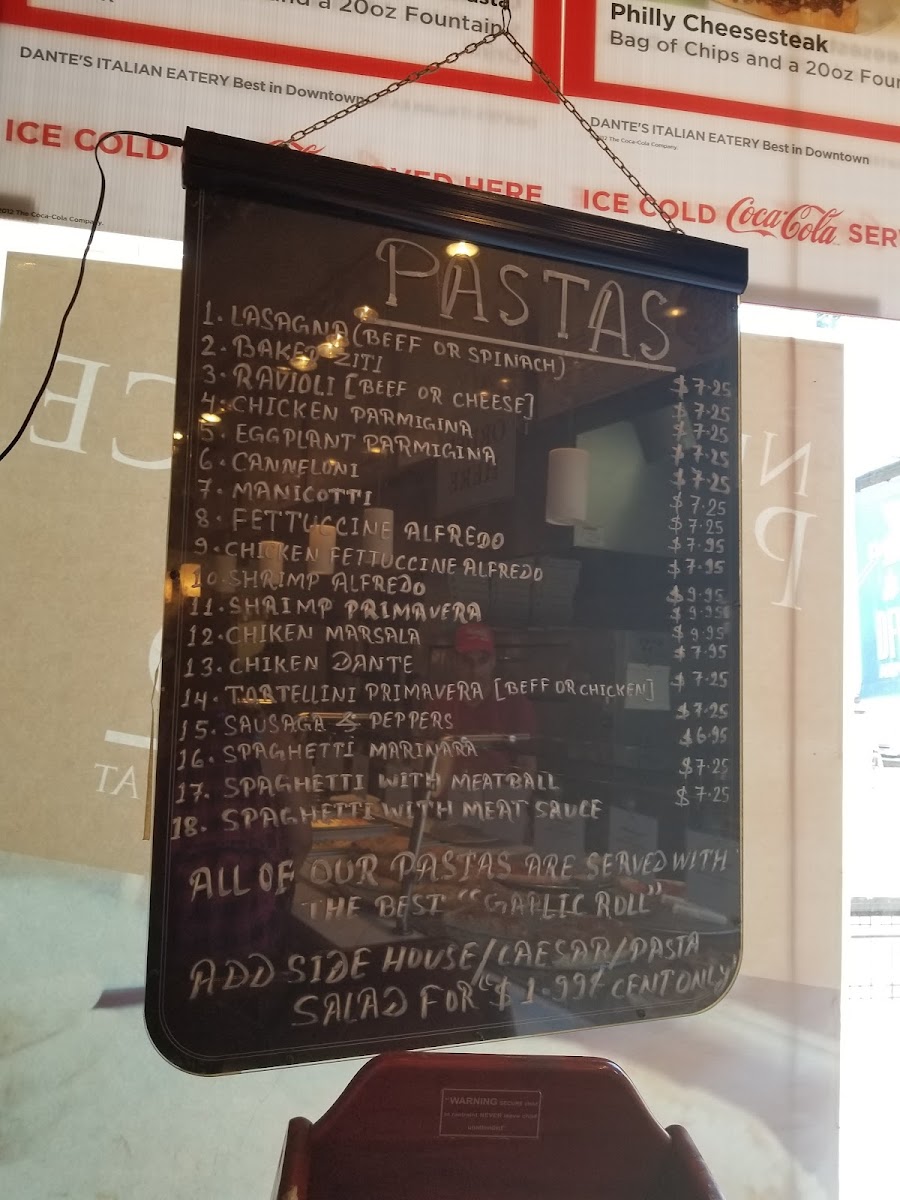 and a 20oz Fountain
Philly Cheesesteak
Bag of Chips and a 20oz Foun
DANTE'S ITALIAN EATERY Best in Downtown
DANTE'S ITALIAN EATERY Best in Downtown
ICE COLD
SERVED HERE
ICE COLD Coca-Cola SER
2012 The Coca-Cola Company.
PASTAS
1. LASAGNA (BEEF OR SPINACH) $7.25
2. BAKED ZITI $7.25
3. RAVIOLI [BEEF OR CHEESE] $7.25
4. CHICKEN PARMIGINA $7.25
5. EGGPLANT PARMIGINA $7.25
6. CANNELONI $7.25
7. MANICOTTI $7.25
8. FETTUCCINE ALFREDO $7.95
9. CHICKEN FETTUCCINE ALFREDO $7.95
10. SHRIMP ALFREDO $9.95
11. SHRIMP PRIMAVERA $9.95
12. CHIKEN MARSALA $9.95
13. CHIKEN DANTE $7.95
14. TORTELLINI PRIMAVERA [BEFF OR CHICKEN] $7.25
15. SAUSAGA & PEPPERS $7.25
16. SPAGHETTI MARINARA $6.95
17. SPAGHETTI WITH MEATBALL $7.25
18. SPAGHETTI WITH MEAT SAUCE $7.25
ALL OF OUR PASTAS ARE SERVED WITH
THE BEST "GARLIC ROLL"
ADD SIDE HOUSE/CAESAR/PASTA
SALAD FOR "$1.99¢ CENT ONLY"
"WARNING SECURE child
in restraint NEVER leave child
unattended"